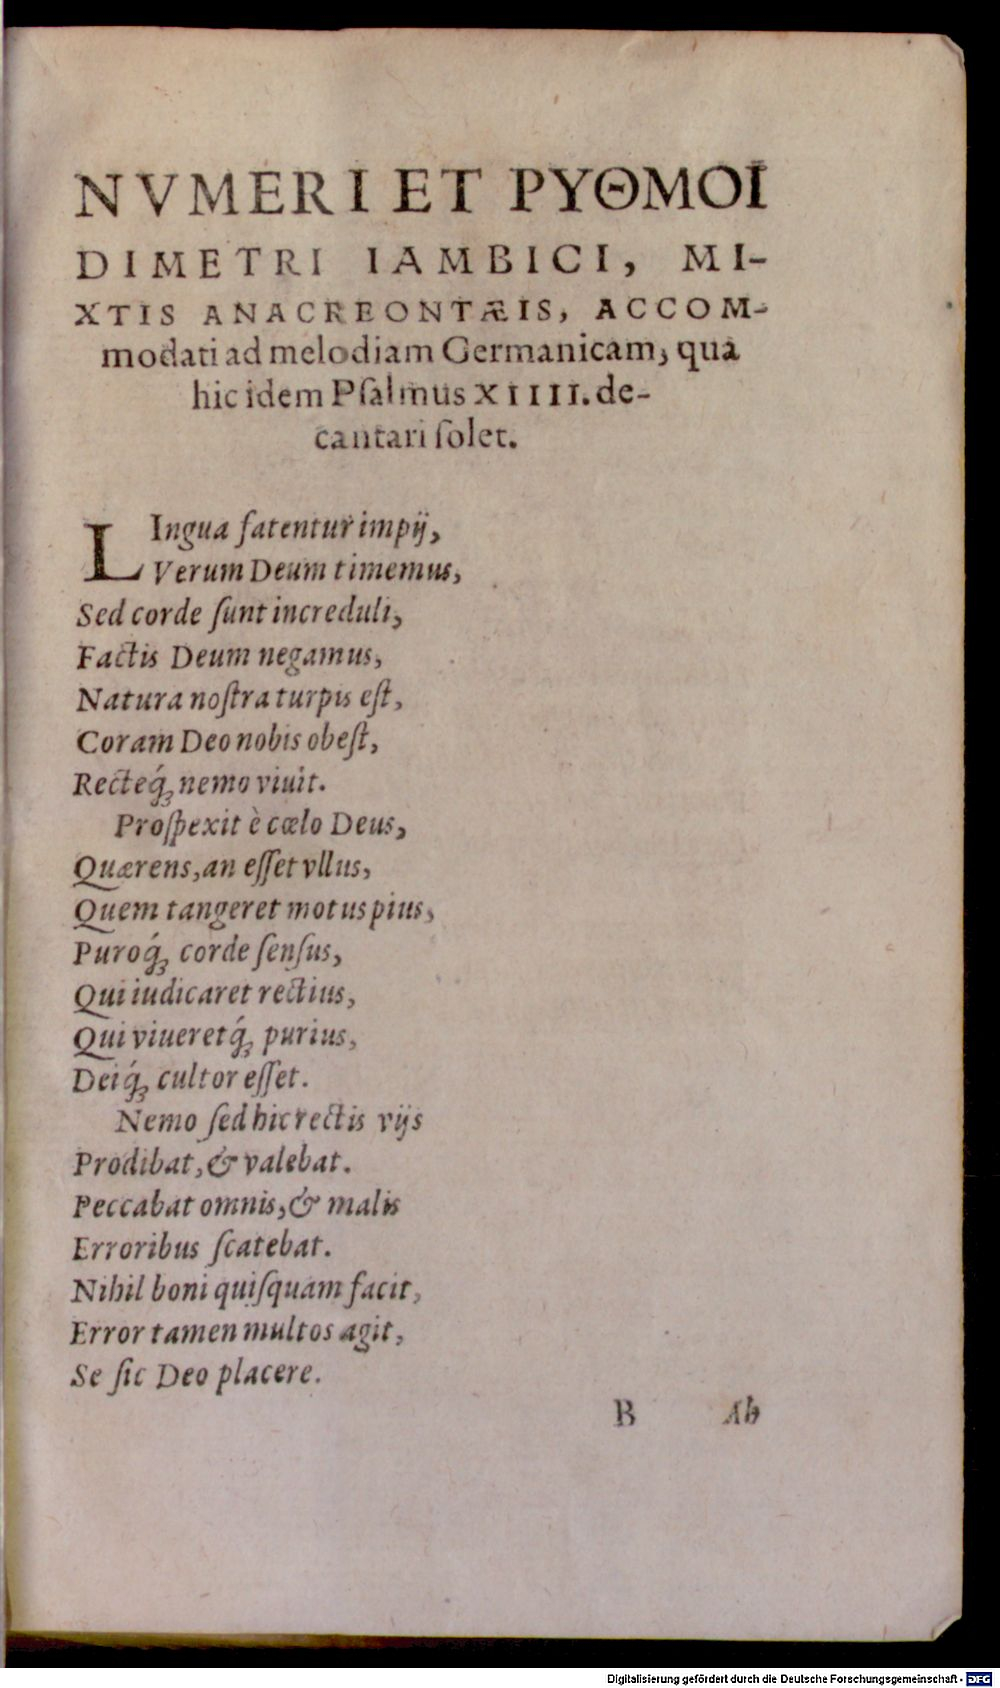 NVMERI ET ΡΥΘΜΟΙ
DIMETRI IAMBICI, MI-
XTIS ANACREONTÆIS, ACCOM-
modati ad melodiam Germanicam, qua
hic idem Pſalmus XIIII. de-
cantari ſolet.
LIngua fatentur impij,
Verum Deum timemus,
Sed corde ſunt increduli,
Factis Deum negamus,
Natura noſtra turpis eſt,
Coram Deo nobis obeſt,
Recteq́ꝫ nemo viuit.
Proſpexit è cœlo Deus,
Quærens, an eſſet vllus,
Quem tangeret motus pius,
Puroq́ꝫ corde ſenſus,
Qui iudicaret rectius,
Qui viueretq́ꝫ purius,
Deiq́ꝫ cultor eſſet.
Nemo ſed hic rectis vijs
Prodibat, & valebat.
Peccabat omnis, & malis
Erroribus ſcatebat.
Nihil boni quiſquam facit,
Error tamen multos agit,
Se ſic Deo placere.
B Ab
Digitalisierung gefördert durch die Deutsche Forschungsgemeinschaft - DFG